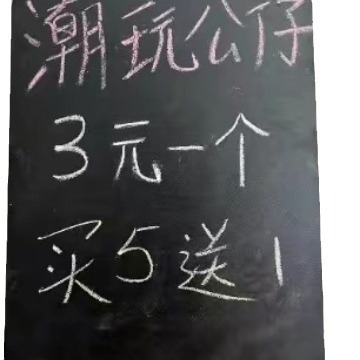 潮玩公仔
3元一个
买5送1